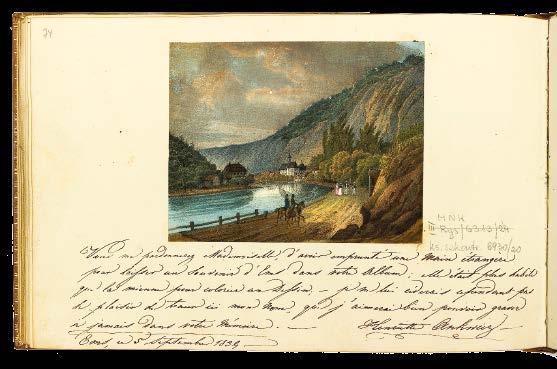 74
MNK
III Rys/6313/24
ks. inwent. 8930/20
Vous me pardonnerez Mademoiselle, d'avoir emprunté une main étrangère
pour laisser un souvenir d'Ems dans votre Album; elle était plus habile
que la mienne pour colorier un dessin, je ne lui cédrais cependant pas
le plaisir de tracer ici mon nom, que j'aimerai bien pouvoir graver
à jamais dans votre mémoire.
Ems, ce 5 Septembre 1839